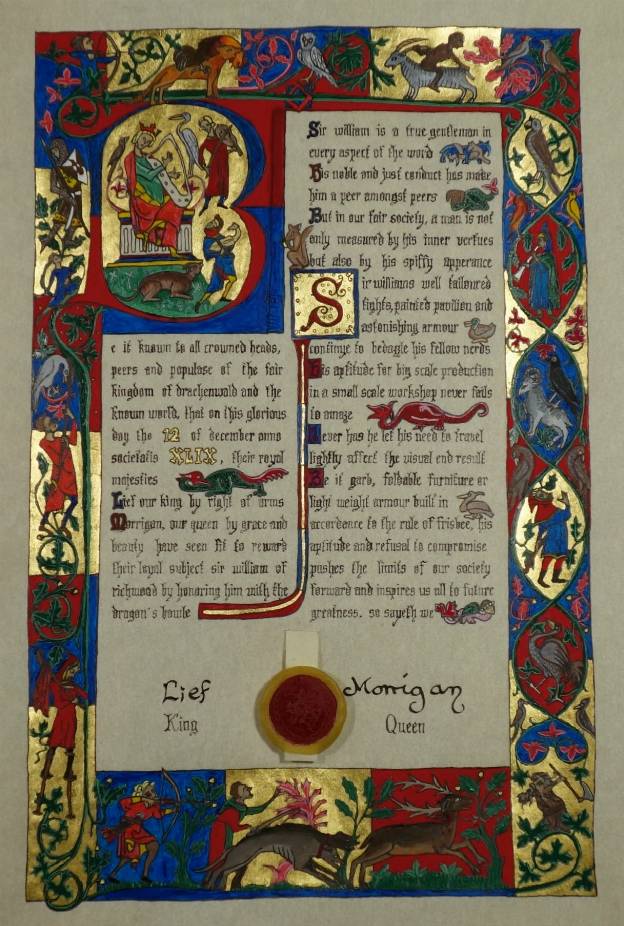 Be it known to all crowned heads,
peers and populase of the fair
kingdom of drachenwald and the
known world, that on this glorious
day the 12 of december anno
societatis XLIX, their royal
majesties
Lief our king by right of arms
Morrigan, our queen by grace and
beauty have seen fit to reward
their loyal subject sir william of
richwood by honoring him with the
dragon's bowle
Sir william is a true gentleman in
every aspect of the word
his noble and just conduct has made
him a peer amongst peers
But in our fair society, a man is not
only measured by his inner vertues
but also by his spiffy apperance
Sir williams well tailoured
tights, painted pavilion and
astonishing armour
continye to bedazzle his fellow nerds
his aptitude for big scale production
in a small scale workshop never fails
to amaze
Never has he let his need to travel
lightly affect the visual end result
Be it garb, foldable furniture or
light weight armour built in
accordence to the rule of frisbee, his
aptitude and refusal to compromise
pushes the limits of our society
forward and inspires us all to future
greatness. so sayeth we
Lief
King
Morrigan
Queen